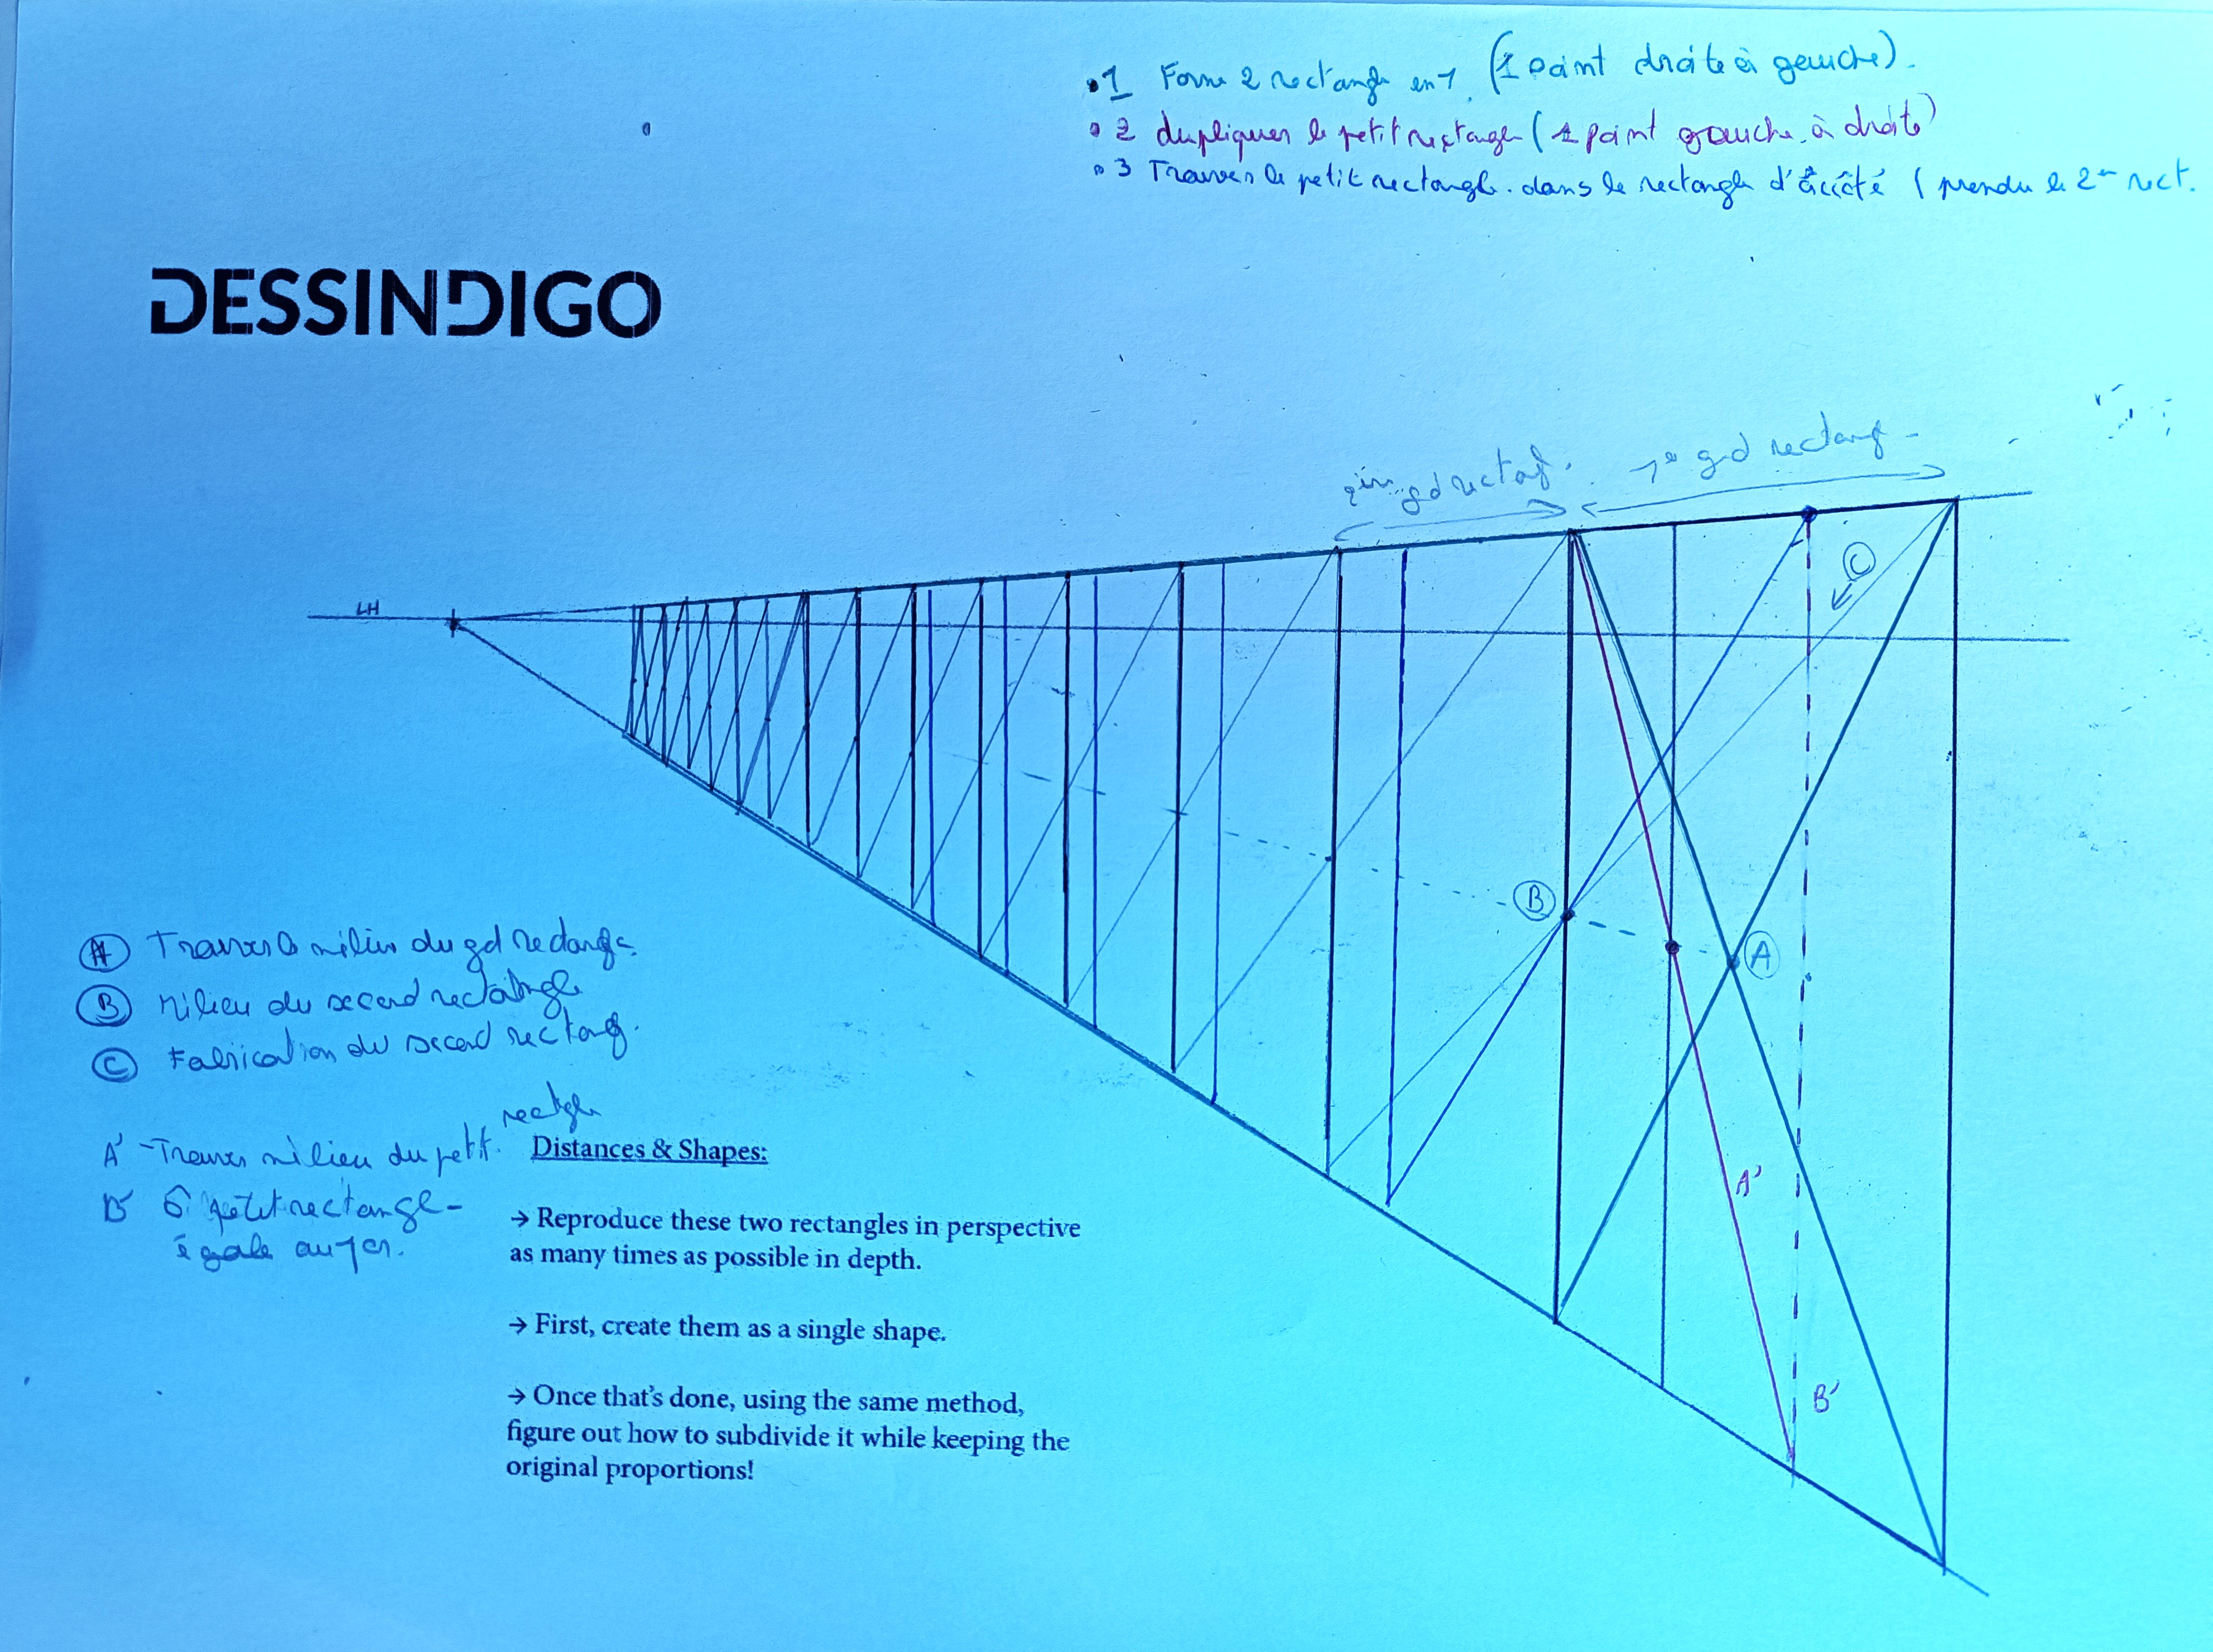 •1 Forme 2 rectangle en 1. (1 point droite à gauche).
• 2 dupliquer le petit rectangle (1 point gauche à droite)
• 3 Trouver le petit rectangle. dans le rectangle d'à côté ( prendre le 2em rect.
DESSINDIGO
gd rectang. 1e grd rectang -
C
LH
B
A
A Trouver le milieu du gd rectangle
B Milieu du second rectangle
C Fabrication du second rectang.
rectgle
A' - Trouver milieu du petit.
B' petit rectangle -
égale au 1er.
A'
B'
Distances & Shapes:
→ Reproduce these two rectangles in perspective
as many times as possible in depth.
→ First, create them as a single shape.
→ Once that's done, using the same method,
figure out how to subdivide it while keeping the
original proportions!